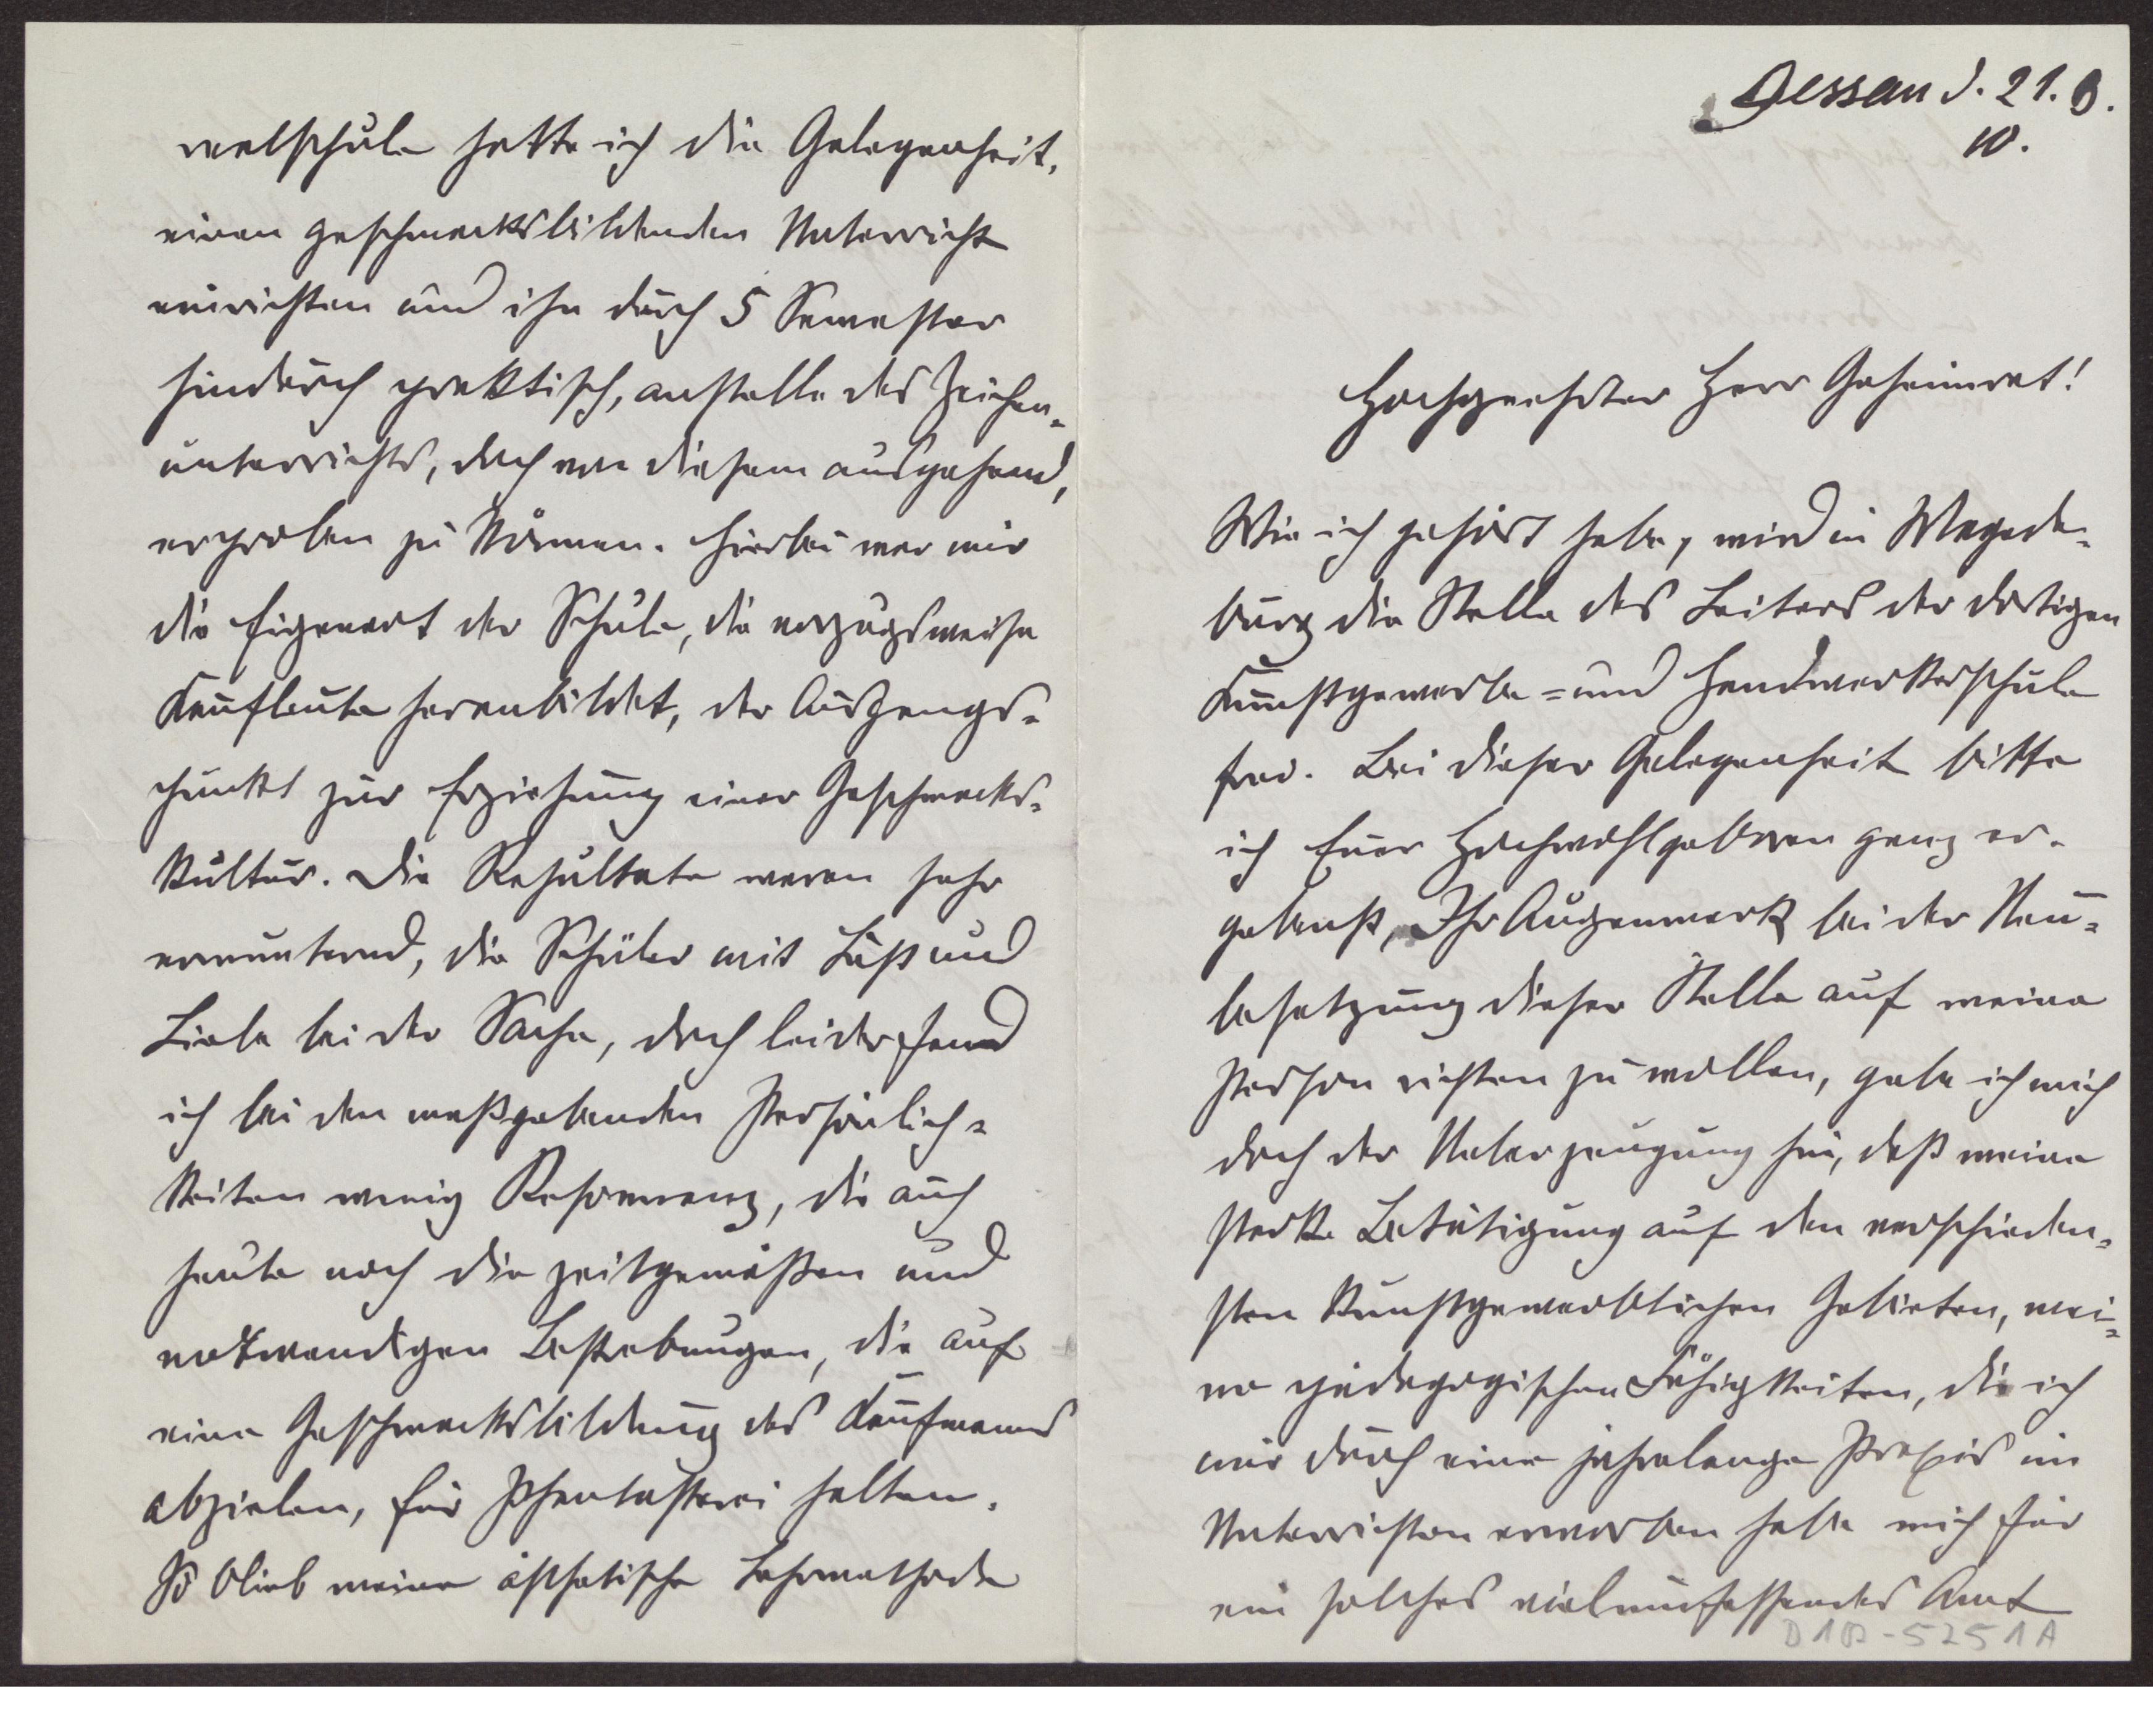 Dessau d. 21. 8.
10.
Hochgeehrter Herr Geheimrat!
Wie ich gehört habe, wird in Magde-
burg die Stelle des Leiters der dortigen
Kunstgewerbe- und Handwerkerschule
frei. Bei dieser Gelegenheit bitte
ich Euer Hochwohlgeboren ganz er-
gebenst, Ihr Augenmerk bei der Neu-
besetzung dieser Stelle auf meine
Person richten zu wollen, gebe ich mich
doch der Ueberzeugung hin, daß meine
starke Betätigung auf den verschieden-
sten kunstgewerblichen Gebieten, mei-
ne pädagogischen Fähigkeiten, die ich
mir durch eine jahrelange Praxis im
Unterrichten erworben habe mich für
ein solches vielumfassendes Amt
D1A-5251A
welschule hatte ich die Gelegenheit,
einen geschmacksbildenden Unterricht
einrichten und ihn durch 5 Semester
hindurch praktisch, anstelle des Zeichen-
unterrichts, doch von diesem ausgehend,
erproben zu können. Hierbei war mir
die Eigenart der Schule, die vorzugsweise
Kaufleute heranbildet, der Ausgangs-
punkt zur Erziehung einer Geschmacks-
kultur. Die Resultate waren sehr
ermunternd, die Schüler mit Lust und
Liebe bei der Sache, doch leider fand
ich bei den maßgebenden Persönlich-
keiten wenig Resonnanz, die auch
heute noch die zeitgemäßen und
notwendigen Bestrebungen, die auf
eine Geschmacksbildung des Kaufmanns
abzielen, für Phantasterei halten.
So blieb meine ästhetische Lehrmethode